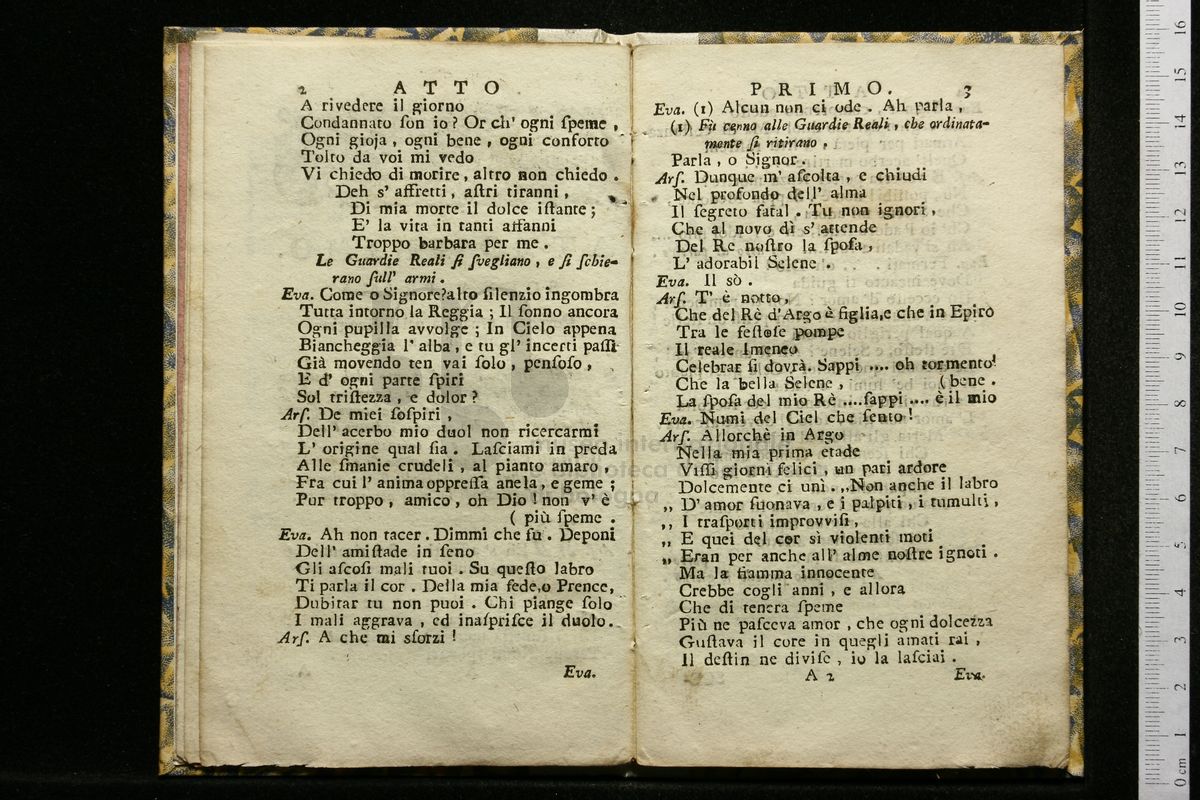 2 ATTO
A rivedere il giorno
Condannato ſon io? Or ch' ogni ſpeme,
Ogni gioja, ogni bene, ogni conforto
Tolto da voi mi vedo
Vi chiedo di morire, altro non chiedo.
Deh s' affretti, aſtri tiranni,
Di mia morte il dolce iſtante;
E' la vita in tanti affanni
Troppo barbara per me.
Le Guardie Reali ſi ſvegliano, e ſi ſchie-
rano ſull' armi.
Eva. Come o Signore? alto ſilenzio ingombra
Tutta intorno la Reggia; Il ſonno ancora
Ogni pupilla avvolge; In Cielo appena
Biancheggia l' alba, e tu gl' incerti paſſi
Già movendo ten vai ſolo, penſoſo,
E d' ogni parte ſpiri
Sol triſtezza, e dolor?
Arſ. De miei ſoſpiri,
Dell' acerbo mio duol non ricercarmi
L' origine qual ſia. Laſciami in preda
Alle ſmanie crudeli, al pianto amaro,
Fra cui l' anima oppreſſa anela, e geme;
Pur troppo, amico, oh Dio! non v' è
( più ſpeme.
Eva. Ah non tacer. Dimmi che fu. Deponi
Dell' amiſtade in ſeno
Gli aſcoſi mali tuoi. Su queſto labro
Ti parla il cor. Della mia fede, o Prence,
Dubitar tu non puoi. Chi piange ſolo
I mali aggrava, ed inaſpriſce il duolo.
Arſ. A che mi sforzi!
Eva.
PRIMO. 3
Eva. (1) Alcun non ci ode. Ah parla,
(1) Fa cenno alle Guardie Reali, che ordinata-
mente ſi ritirano.
Parla, o Signor.
Arſ. Dunque m' aſcolta, e chiudi
Nel profondo dell' alma
Il ſegreto fatal. Tu non ignori,
Che al novo dì s' attende
Del Re noſtro la ſpoſa,
L' adorabil Selene.
Eva. Il sò.
Arſ. T' è notto,
Che del Rè d'Argo è figlia, e che in Epiro
Tra le feſtoſe pompe
Il reale Imeneo
Celebrar ſi dovrà. Sappi .... oh tormento!
Che la bella Selene, ( bene.
La ſpoſa del mio Rè .... ſappi .... è il mio
Eva. Numi del Ciel che ſento!
Arſ. Allorchè in Argo
Nella mia prima etade
Viſſi giorni felici, un pari ardore
Dolcemente ci unì. „Non anche il labro
„ D' amor ſuonava, e i palpiti, i tumulti,
„ I traſporti improvviſi,
„ E quei del cor sì violenti moti
„ Eran per anche all' alme noſtre ignoti.
Ma la fiamma innocente
Crebbe cogli anni, e allora
Che di tenera ſpeme
Più ne paſceva amor, che ogni dolcezza
Guſtava il core in quegli amati rai,
Il deſtin ne diviſe, io la laſciai.
A 2 Eva.